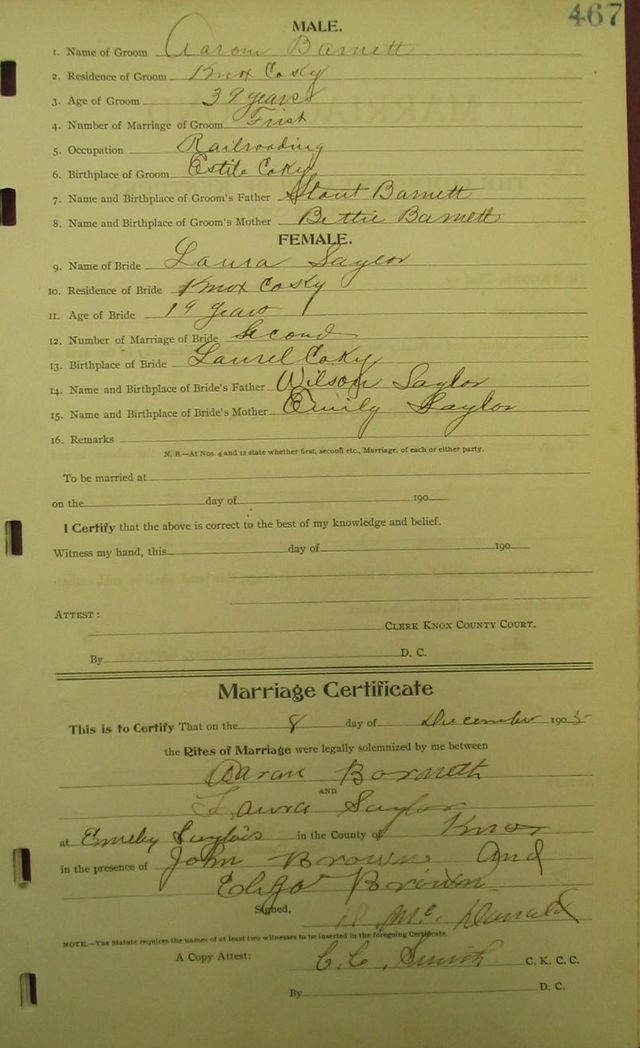 467
MALE.
1. Name of Groom Aaron Barnett
2. Residence of Groom Knox Co Ky
3. Age of Groom 39 years
4. Number of Marriage of Groom Frist
5. Occupation Railroading
6. Birthplace of Groom Estile Co Ky
7. Name and Birthplace of Groom's Father Stout Barnett
8. Name and Birthplace of Groom's Mother Bettie Barnett
FEMALE.
9. Name of Bride Laura Saylor
10. Residence of Bride Knox Co Ky
11. Age of Bride 19 years
12. Number of Marriage of Bride Second
13. Birthplace of Bride Laurel Co Ky
14. Name and Birthplace of Bride's Father Wilson Saylor
15. Name and Birthplace of Bride's Mother Emily Saylor
16. Remarks
N. B.—At Nos. 4 and 12 state whether first, second etc., Marriage, of each or either party.
To be married at
on the day of 190
I Certify that the above is correct to the best of my knowledge and belief.
Witness my hand, this day of 190
ATTEST:
CLERK KNOX COUNTY COURT.
By D. C.
Marriage Certificate
This is to Certify That on the 8 day of December 1905
the Rites of Marriage were legally solemnized by me between
Aaron Barnett
AND
Laura Saylor
at Emily Saylors in the County of Knox
in the presence of John Brown And
Brown
Signed, Mc Donald
NOTE.—The Statute requires the names of at least two witnesses to be inserted in the foregoing Certificate.
A Copy Attest: C. C. Smith C. K. C. C.
By D. C.